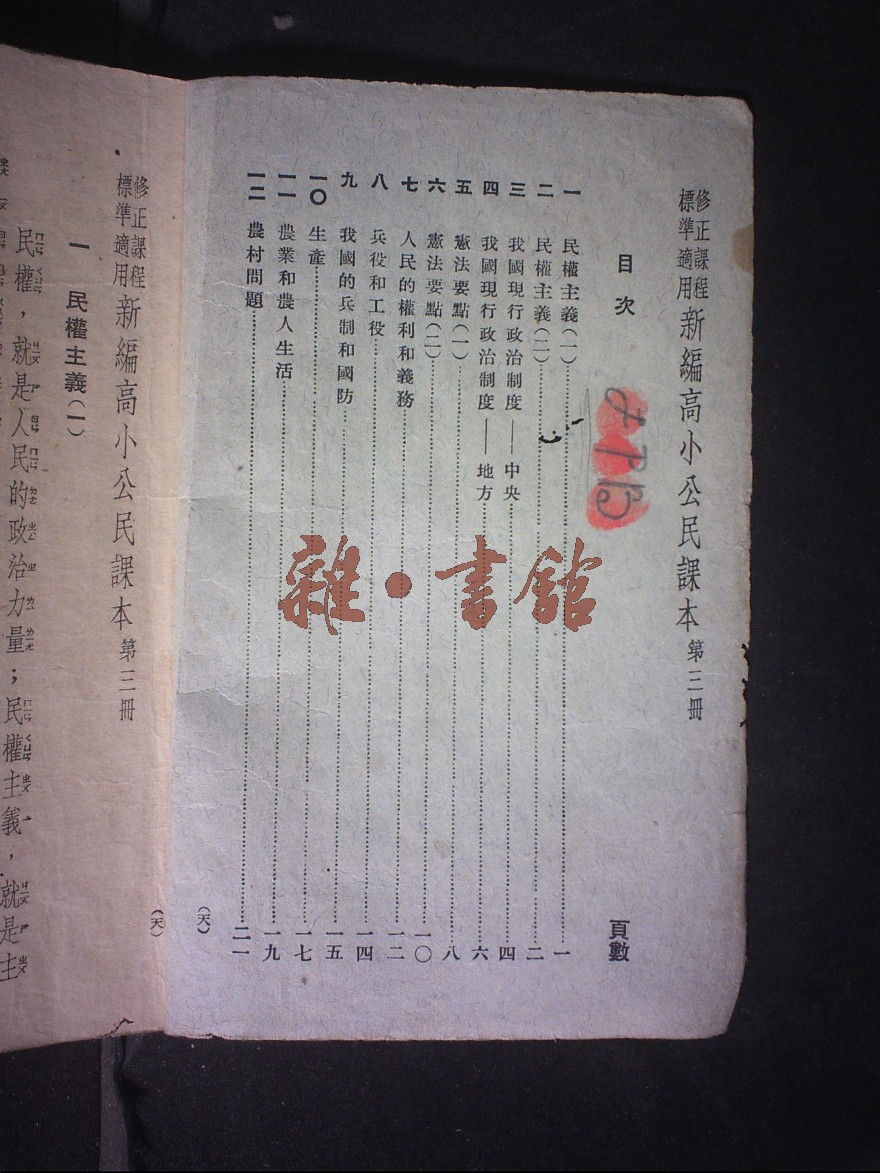 修正課程標準適用 新編高小公民課本 第三冊
目次
頁數
一 民權主義(一) 一
二 民權主義(二) 二
三 我國現行政治制度——中央 四
四 我國現行政治制度——地方 六
五 憲法要點(一) 八
六 憲法要點(二) 一〇
七 人民的權利和義務 一二
八 兵役和工役 一四
九 我國的兵制和國防 一五
一〇 生產 一七
一一 農業和農人生活 一九
一二 農村問題 二一
(天)
雜·書館
修正課程標準適用 新編高小公民課本 第三冊
(天)
一 民權主義(一)
民權,就是人民的政治力量;民權主義,就是主